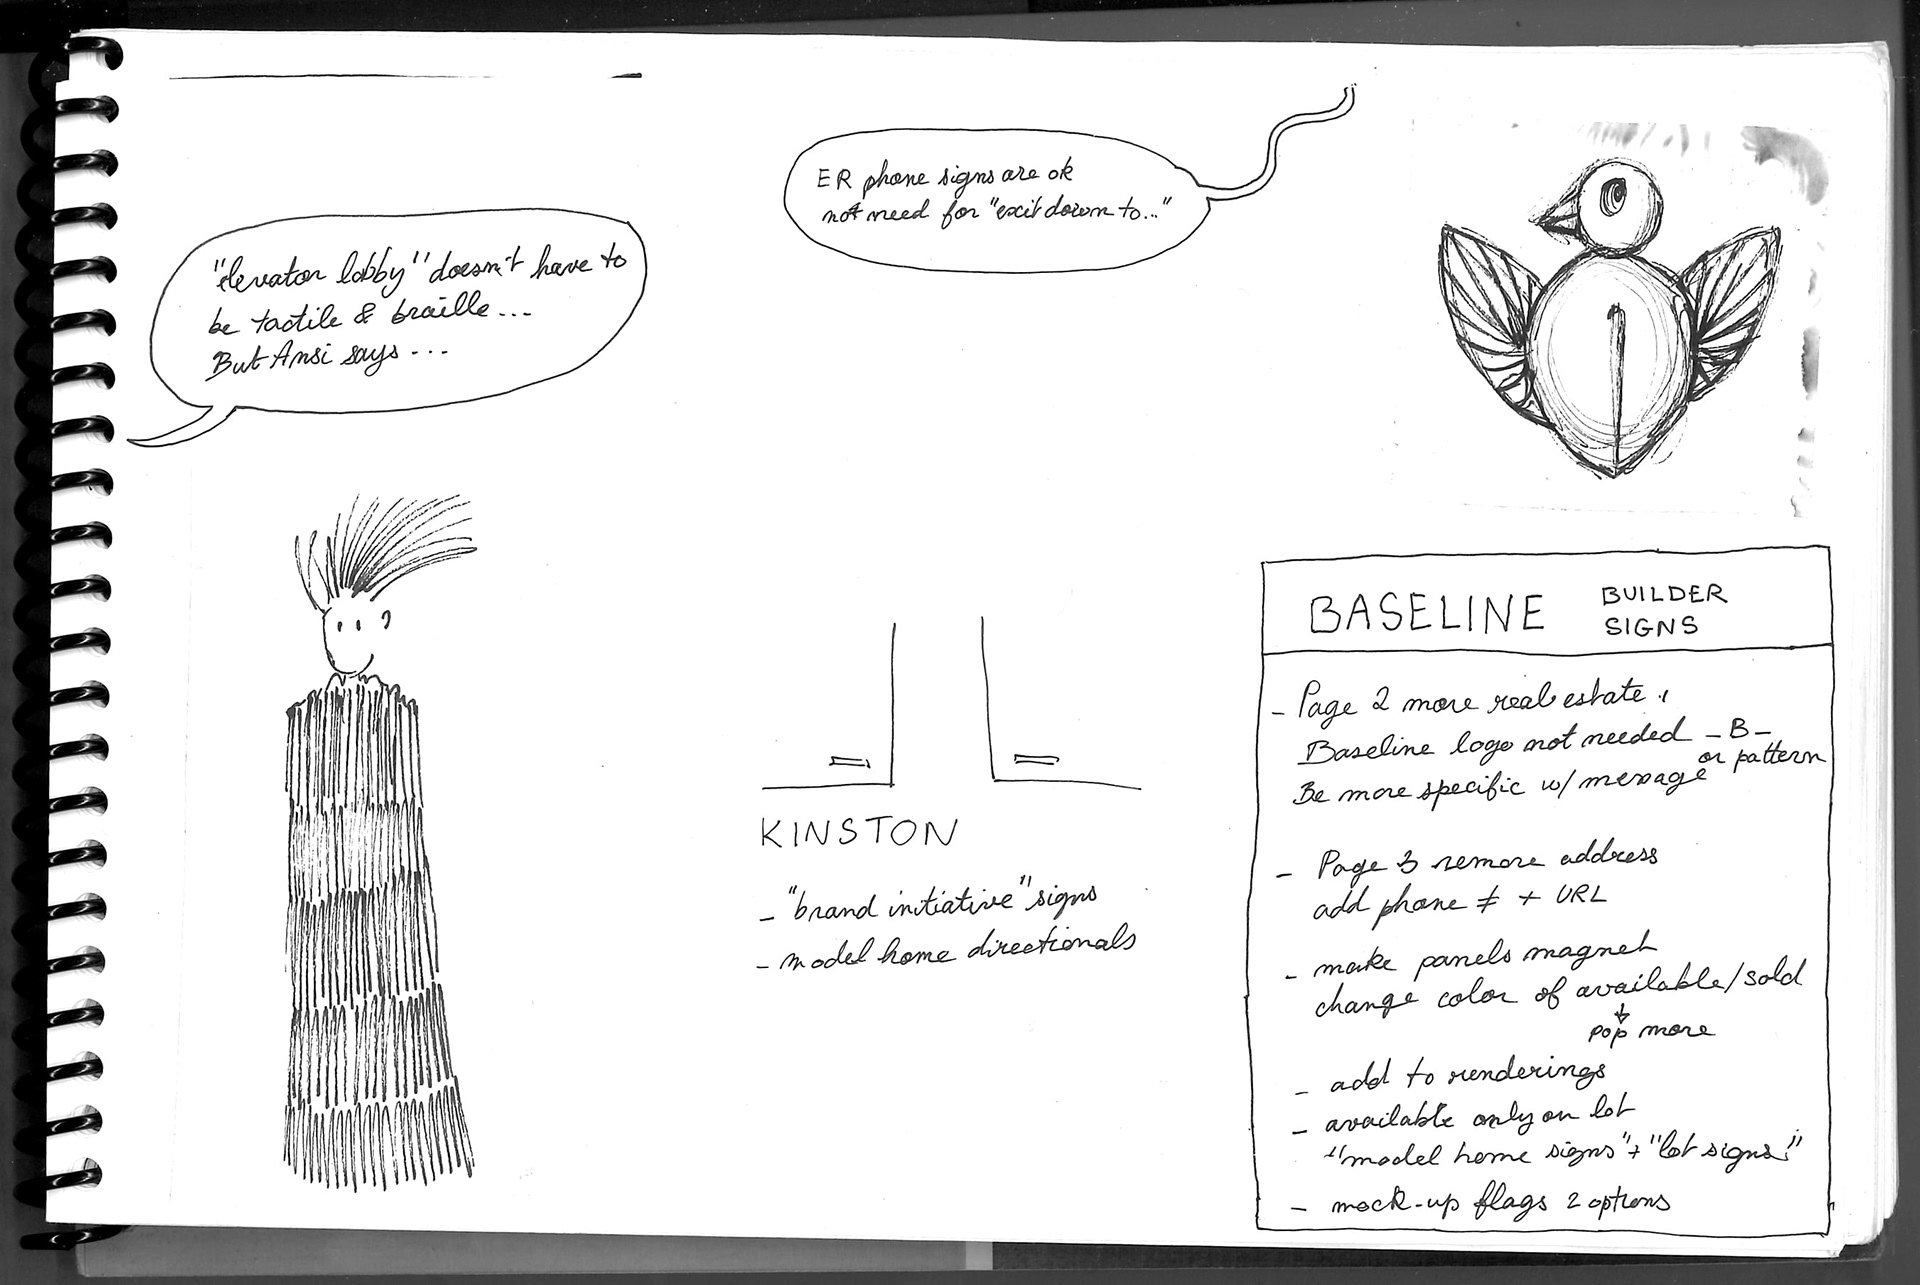 "elevator lobby" doesn't have to
be tactile & braille...
But Ansi says...
ER phone signs are ok
not need for "exit down to..."
KINSTON
- "brand initiative" signs
- model home directionals
BASELINE BUILDER
SIGNS
- Page 2 more real estate
Baseline logo not needed -B-
or pattern
Be more specific w/ message
- Page 3 remove address
add phone ≠ + URL
- make panels magnet
change color of available/sold
↓
pop more
- add to renderings
- available only on lot
"model home signs" + "lot signs"
- mock-up flags 2 options